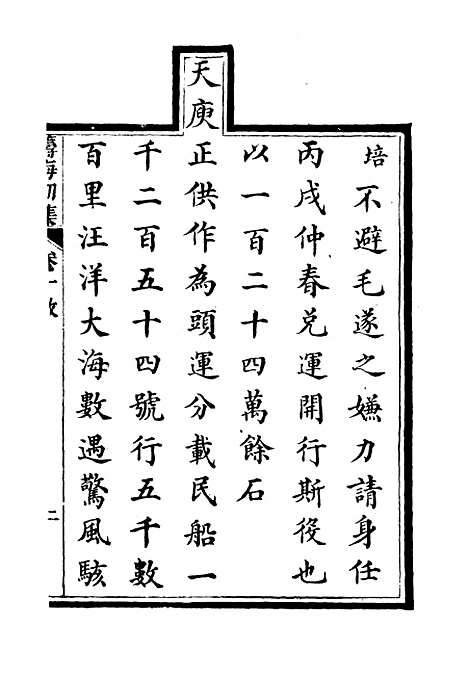 培不避毛遂之嫌力請身任
丙戌仲春兌運開行斯役也
以一百二十四萬餘石
天庾正供作為頭運分載民船一
千二百五十四號行五千數
百里汪洋大海數遇驚風駭
籌海初集 卷一 敘
二